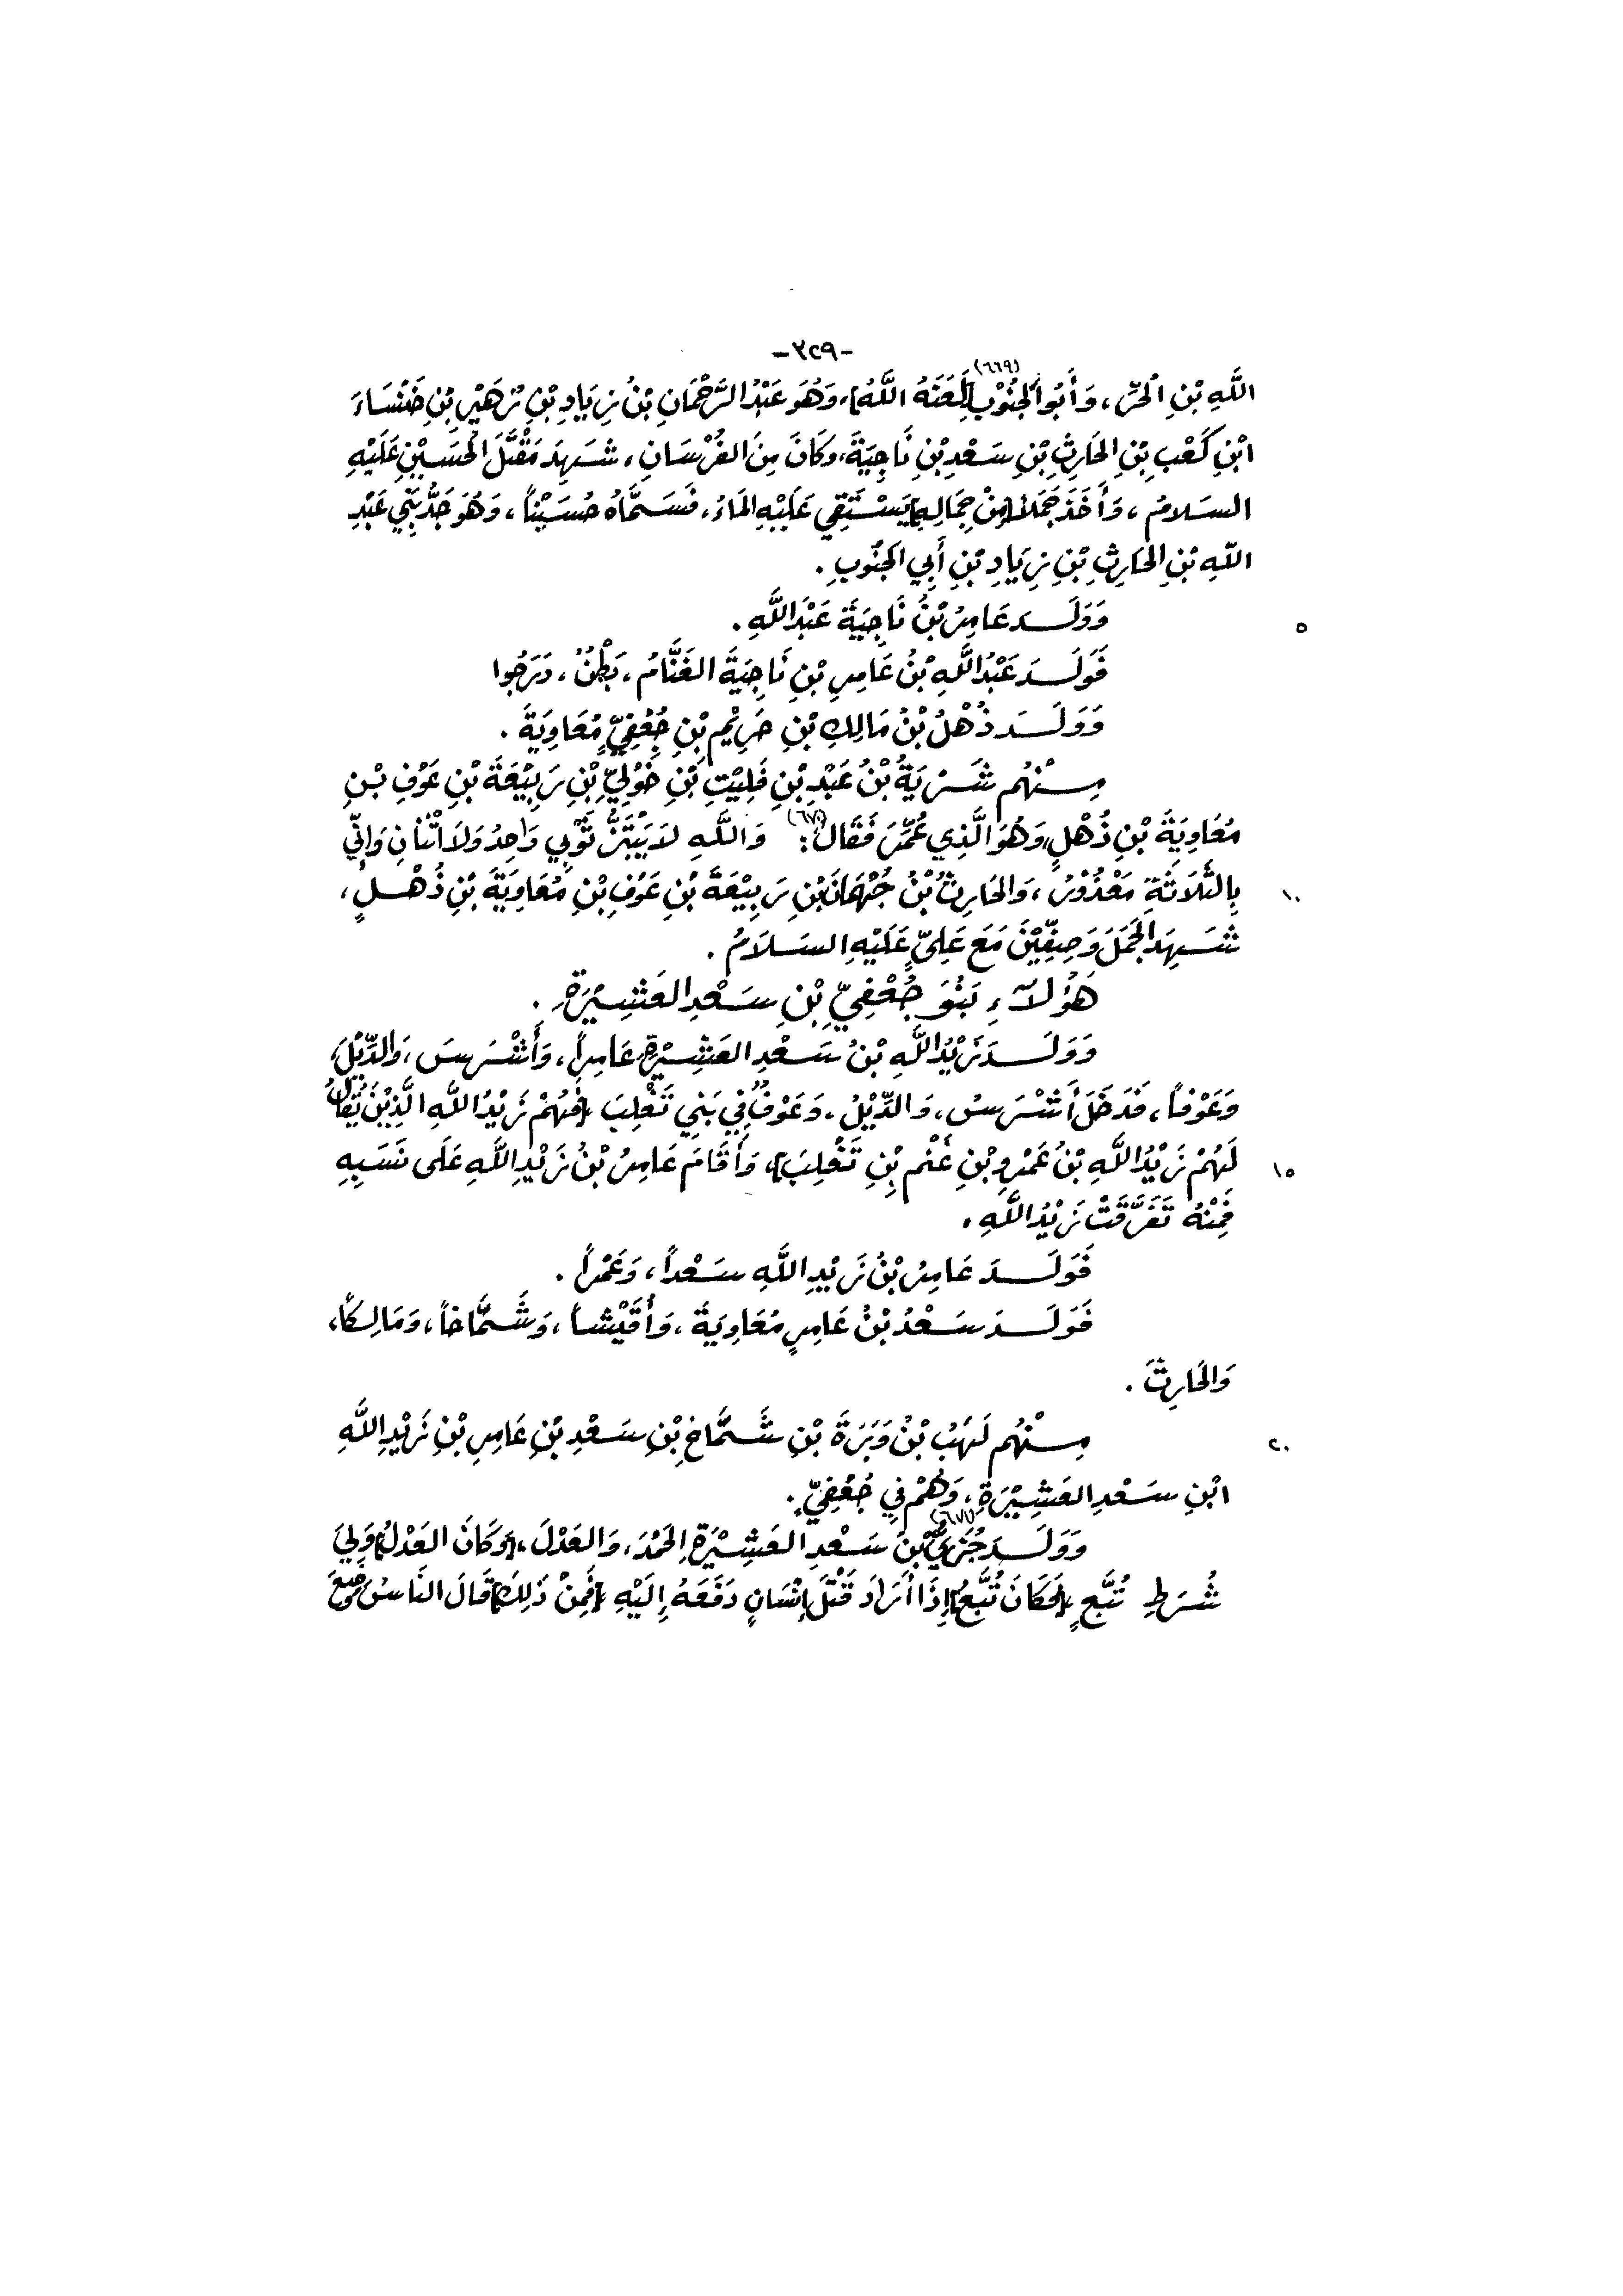 -٣٢٩-
اللَّهِ بْنِ الحُرِّ، وَأَبُو الجُنُوْبِ (٦٦٩) [لَعَنَهُ اللَّهُ]، وَهُوَ عَبْدُ الرَّحْمَانِ بْنُ زِيَادِ بْنِ زُهَيْرِ بْنِ خَنْسَاءَ
ابْنِ كَعْبِ بْنِ الحَارِثِ بْنِ سَعْدِ بْنِ نَاجِيَةَ، وَكَانَ مِنَ الفُرْسَانِ، شَهِدَ مَقْتَلَ الحُسَيْنِ عَلَيْهِ
السَلامُ، وَأَخَذَ جَمَلاً [مِنْ جِمَالِهِ] يَسْتَقِي عَلَيْهِ المَاءَ، فَسَمَّاهُ حُسَيْناً، وَهُوَ جَدُّ بَنِي عَبْدِ
اللهِ بْنِ الحَارِثِ بْنِ زِيَادِ بْنِ أَبِي الجُنُوبِ.
وَوَلَدَ عَامِرُ بْنُ نَاجِيَةَ عَبْدَ اللَّهِ. ٥
فَوَلَدَ عَبْدُ اللَّهِ بْنُ عَامِرِ بْنِ نَاجِيَةَ الغَنَّامَ، بَطْنٌ، دَرَجُوا
وَوَلَدَ ذُهْلُ بْنُ مَالِكِ بْنِ حَرِيْمِ بْنِ جُعْفِيٍّ مُعَاوِيَةَ.
مِنْهُم شَرْيَةُ بْنُ عَبْدِ بْنِ قَلِيْتِ بْنِ خَوْلِيِّ بْنِ رَبِيْعَةَ بْنِ عَوْفِ بْنِ
مُعَاوِيَةَ بْنِ ذُهْلٍ، وَهُوَ الَّذِي عُمِّرَ فَقَالَ (٦٧٠): وَاللَّهِ لاَ يَبْتَزُّ ثَوْبِي وَاحِدٌ وَلاَ اثْنَانِ وَإِنِّي
بِالثَّلَاثَةِ مَعْذُوْرٌ، وَالحَارِثُ بْنُ جُهْمَانَ بْنِ رَبِيْعَةَ بْنِ عَوْفِ بْنِ مُعَاوِيَةَ بْنِ ذُهْلٍ، ١٠
شَهِدَ الجَمَلَ وَصِفِّيْنَ مَعَ عَلِيٍّ عَلَيْهِ السَلَامُ.
هَؤُلاَءِ بَنُو جُعْفِيِّ بْنِ سَعْدِ العَشِيْرَةِ.
وَوَلَدَ زَيْدُ اللَّهِ بْنُ سَعْدِ العَشِيْرَةِ عَامِراً، وَأَشْرَسَ، وَالدِّيْلَ،
وَعَوْفاً، فَدَخَلَ أَشْرَسُ، وَالدِّيْلُ، وَعَوْفٌ فِي بَنِي تَغْلِبَ [فَهُمْ زَيْدُ اللهِ الَّذِيْنَ يُقَالُ
لَهُمْ زَيْدُ اللهِ بْنُ عَمْرِو بْنِ غَنْمِ بْنِ تَغْلِبَ]، وَأَقَامَ عَامِرُ بْنُ زَيْدِ اللَّهِ عَلَى نَسَبِهِ ١٥
فَمِنْهُ تَفَرَّقَتْ زَيْدُ اللَّهِ.
فَوَلَدَ عَامِرُ بْنُ زَيْدِ اللَّهِ سَعْداً، وَعَمْراً.
فَوَلَدَ سَعْدُ بْنُ عَامِرٍ مُعَاوِيَةَ، وَأُقَيْشاً، وَشَمَّاخاً، وَمَالِكاً،
وَالحَارِثَ.
مِنْهُم لَهَبُ بْنُ وَبَرَةَ بْنِ شَمَّاخِ بْنِ سَعْدِ بْنِ عَامِرِ بْنِ زَيْدِ اللَّهِ ٢٠
ابْنِ سَعْدِ العَشِيْرَةِ، وَهُمْ فِي جُعْفِيٍّ.
وَوَلَدَ جُزْيُّ (٦٧١) بْنُ سَعْدِ العَشِيْرَةِ الحَمْدَ، وَالعَدْلَ، [وَكَانَ العَدْلُ] وَلِيَ
شُرَطِ تُبَّعٍ [فَكَانَ تُبَّعٌ] إِذَا أَرَادَ قَتْلَ إِنْسَانٍ دَفَعَهُ إِلَيْهِ [فَمِنْ ذَلِكَ] قَالَ النَاسُ وُضِعَ